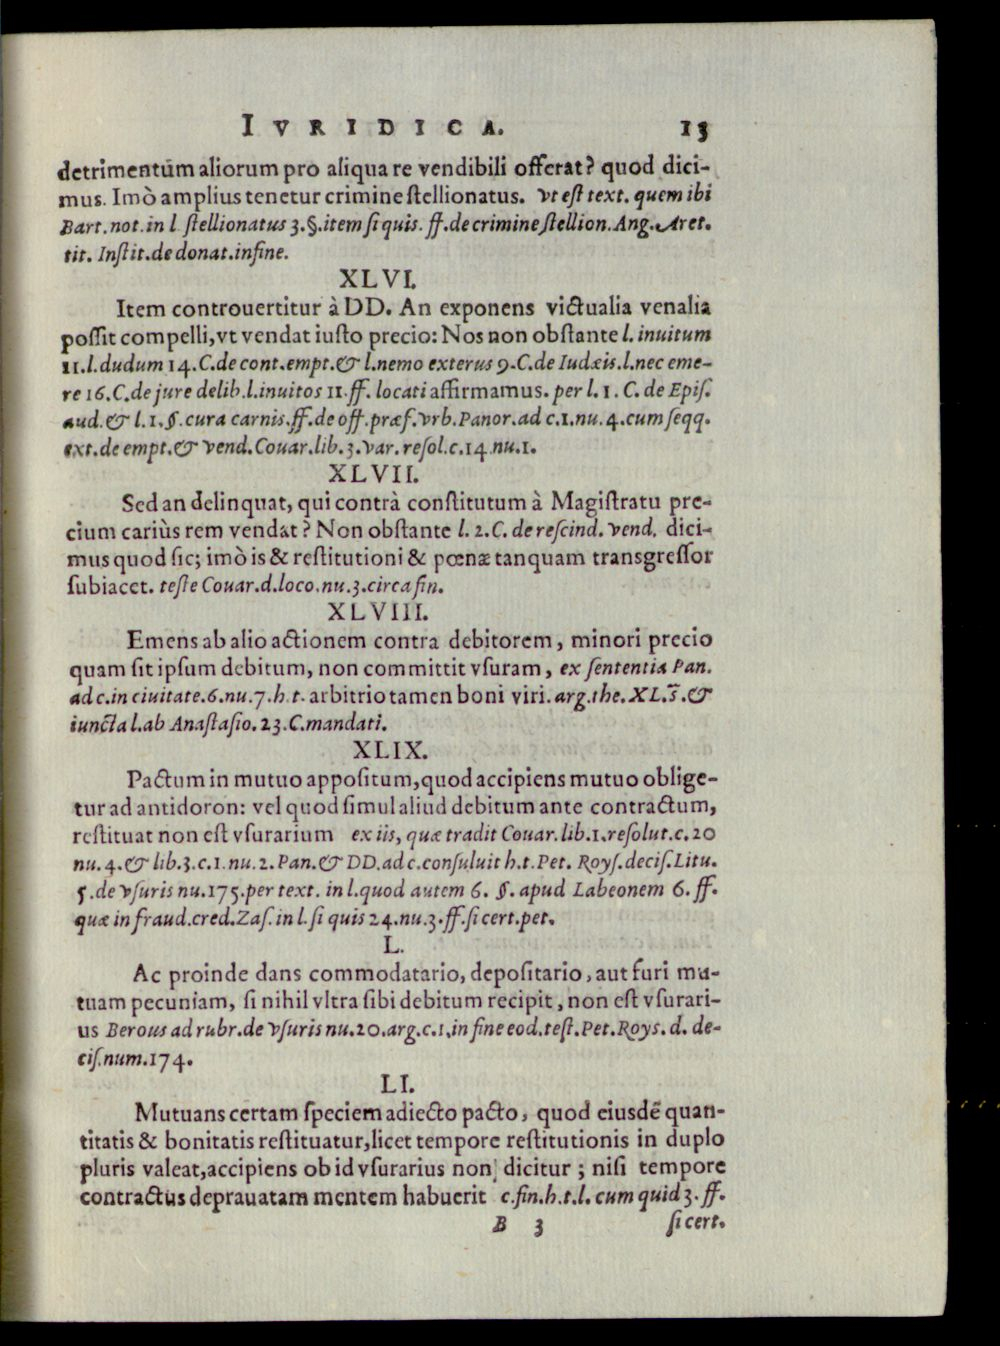 IVRIDICA. 13
detrimentūm aliorum pro aliqua re vendibili offerat? quod dici-
mus. Imò amplius tenetur crimine ſtellionatus. vt eſt text. quem ibi
Bart. not. in l. ſtellionatus 3. §. item ſi quis. ff. de crimine ſtellion. Ang. Aret.
tit. Inſtit. de donat. in fine.
XLVI.
Item controuertitur à DD. An exponens victualia venalia
poſſit compelli, vt vendat iuſto precio: Nos non obſtante l. inuitum
11. l. dudum 14. C. de cont. empt. & l. nemo exterus 9. C. de Iudæis. l. nec eme-
re 16. C. de jure delib. l. inuitos 11. ff. locati affirmamus. per l. 1. C. de Epiſ.
aud. & l. 1. §. cura carnis. ff. de off. præf. vrb. Panor. ad c. 1. nu. 4. cum ſeqq.
ext. de empt. & vend. Couar. lib. 3. var. reſol. c. 14 nu. 1.
XLVII.
Sed an delinquat, qui contrà conſtitutum à Magiſtratu pre-
cium cariùs rem vendat? Non obſtante l. 2. C. de reſcind. vend. dici-
mus quod ſic; imò is & reſtitutioni & pœnæ tanquam transgreſſor
ſubiacet. teſte Couar. d. loco. nu. 3. circa fin.
XLVIII.
Emens ab alio actionem contra debitorem, minori precio
quam ſit ipſum debitum, non committit vſuram, ex ſententia Pan.
ad c. in ciuitate. 6. nu. 7. h. t. arbitrio tamen boni viri. arg. the. XL. 5. &
iuncta l. ab Anaſtaſio. 23. C. mandati.
XLIX.
Pactum in mutuo appoſitum, quod accipiens mutuo oblige-
tur ad antidoron: vel quod ſimul aliud debitum ante contractum,
reſtituat non eſt vſurarium ex iis, quæ tradit Couar. lib. 1. reſolut. c. 20
nu. 4. & lib. 3. c. 1. nu. 2. Pan. & DD. ad c. conſuluit h. t. Pet. Royſ. deciſ. Litu.
5. de vſuris nu. 175. per text. in l. quod autem 6. §. apud Labeonem 6. ff.
quæ in fraud. cred. Zaſ. in l. ſi quis 24. nu. 3. ff. ſi cert. pet.
L.
Ac proinde dans commodatario, depoſitario, aut furi mu-
tuam pecuniam, ſi nihil vltra ſibi debitum recipit, non eſt vſurari-
us Berous ad rubr. de vſuris nu. 20. arg. c. 1. in fine eod. teſt. Pet. Roys. d. de-
ciſ. num. 174.
LI.
Mutuans certam ſpeciem adiecto pacto, quod eiusdē quan-
titatis & bonitatis reſtituatur, licet tempore reſtitutionis in duplo
pluris valeat, accipiens ob id vſurarius non dicitur; niſi tempore
contractus deprauatam mentem habuerit c. fin. h. t. l. cum quid 3. ff.
B 3 ſi cert.